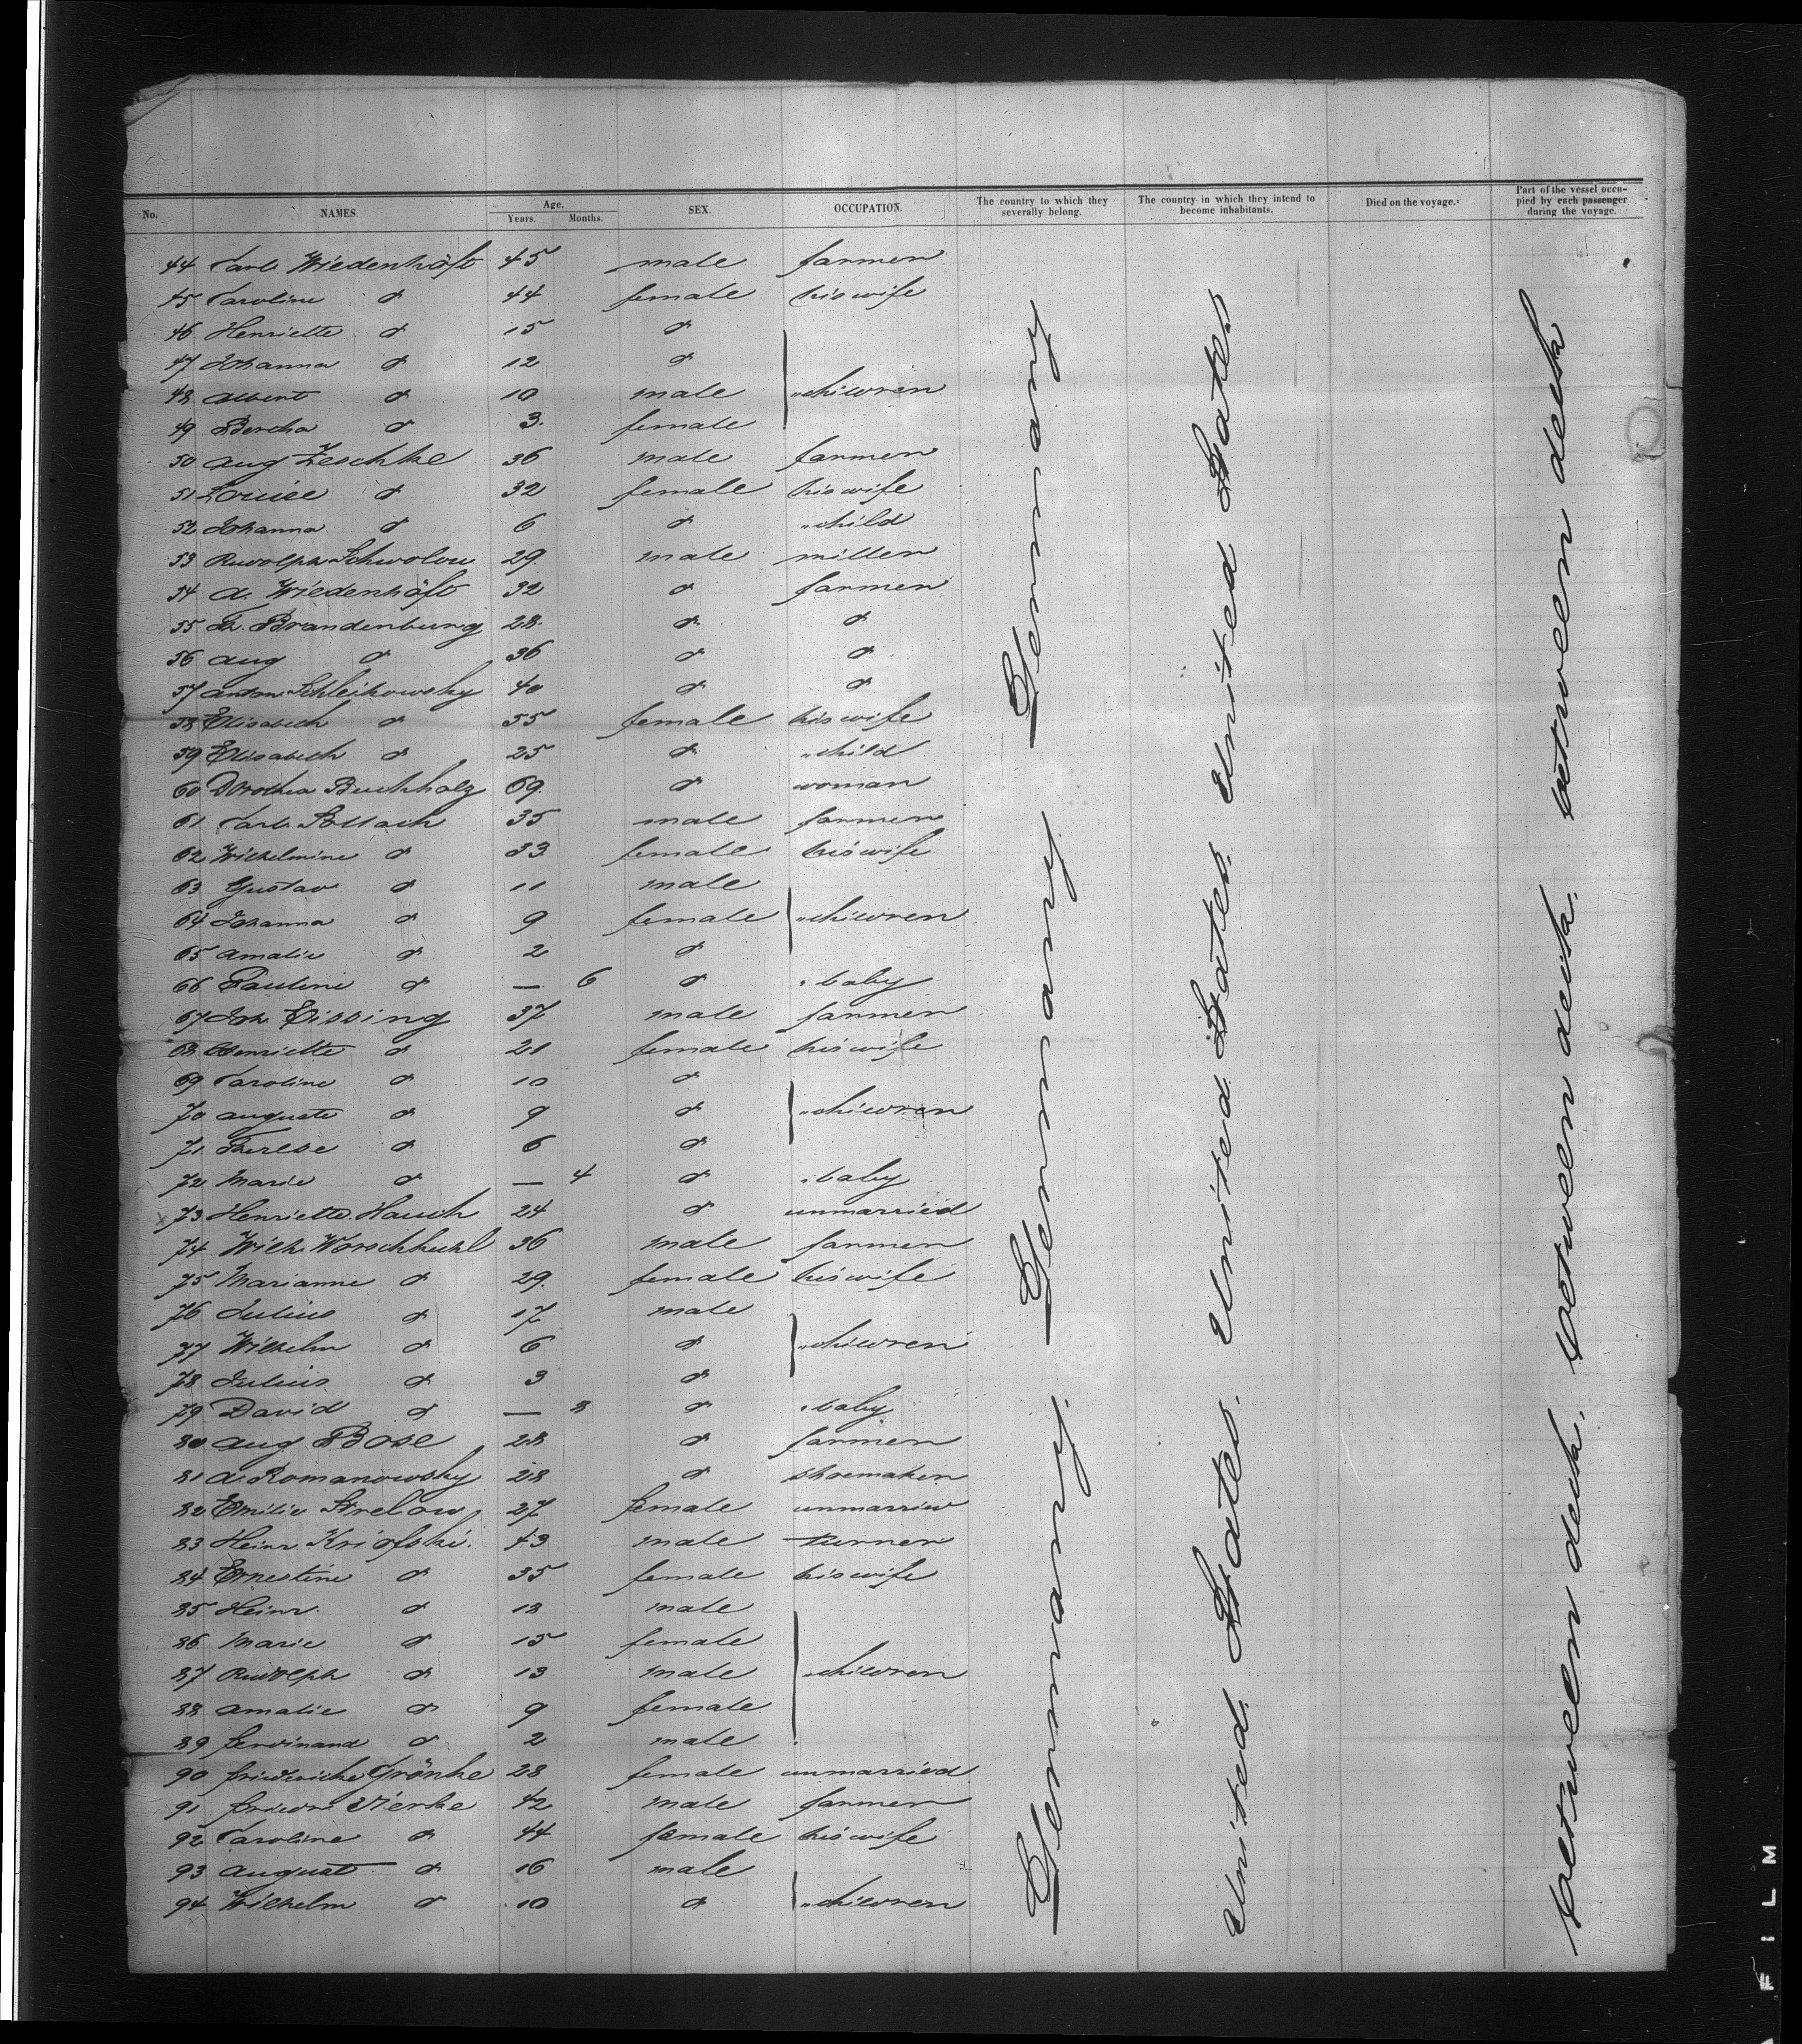 No. NAMES. Age. Years. Months. SEX. OCCUPATION. The country to which they severally belong. The country in which they intend to become inhabitants. Died on the voyage. Part of the vessel occupied by each passenger during the voyage.
44 Carl Wiedenhöft 45 male farmer
45 Caroline do 44 female his wife
46 Henriette do 15 do
47 Johanna do 12 do
48 Albert do 10 male " children
49 Bertha do 3. female
50 Aug Zeschke 36 male farmer
51 Louise do 32 female his wife
52 Johanna do 6 do " child
53 Rudolph Schwolow 29. male miller
54 A. Wiedenhöft 32 do farmer
55 Fr. Brandenburg 28. do do
56 Aug do 36 do do
57 Anton Schleikowsky 40 do do
58 Elisabeth do 55 female his wife
59 Elisabeth do 25 do " child
60 Dorothea Buchholz 69. do woman
61 Carl 35 male farmer
62 Wilhelmine do 33. female his wife
63 Gustav do 11 male
64 Johanna do 9 female " children
65 Amalie do 2 do
66 Pauline do — 6 do " baby
67 Joh. Eissing 37 male farmer
68 Henriette do 21 female his wife
69 Caroline do 10 do
70 Auguste do 9 do " children
71 Therese do 6 do
72 Marie do — 4 do " baby
73 Henriette Hauch 24 do unmarried
74 Wilh. 36 male farmer
75 Marianne do 29. female his wife
76 Julius do 17 male
77 Wilhelm do 6 do " children
78 Julius do 3 do
79 David do — 8 do " baby
80 Aug Bose 28 do farmer
81 A. Romanowsky 28 do shoemaker
82 Emilie Strelow 27 female unmarried
83 Heinr. 43 male turner
84 Ernestine do 35 female his wife
85 Heinr. do 18 male
86 Marie do 15 female
87 Rudolph do 13 male " children
88 Amalie do 9 female
89 Ferdinand do 2 male
90 Friedericke Grönke 28 female unmarried
91 Friedr. Vierke 42 male farmer
92 Caroline do 44 female his wife
93 August do 16 male
94 Wilhelm do 10 do " children
Germany. Germany. Germany. Germany
United States. United States. United States. United States
between deck. between deck. between deck. between deck
FILM